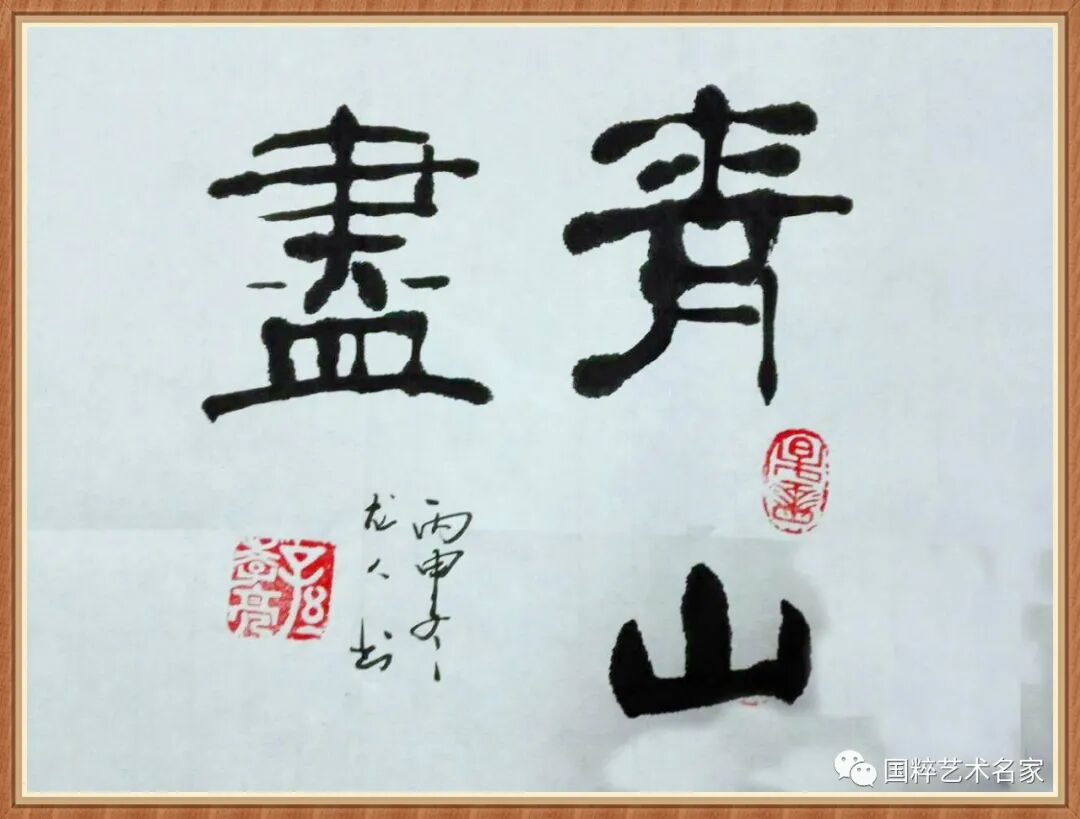 青山
盡
丙申冬
龙人书
国粹艺术名家